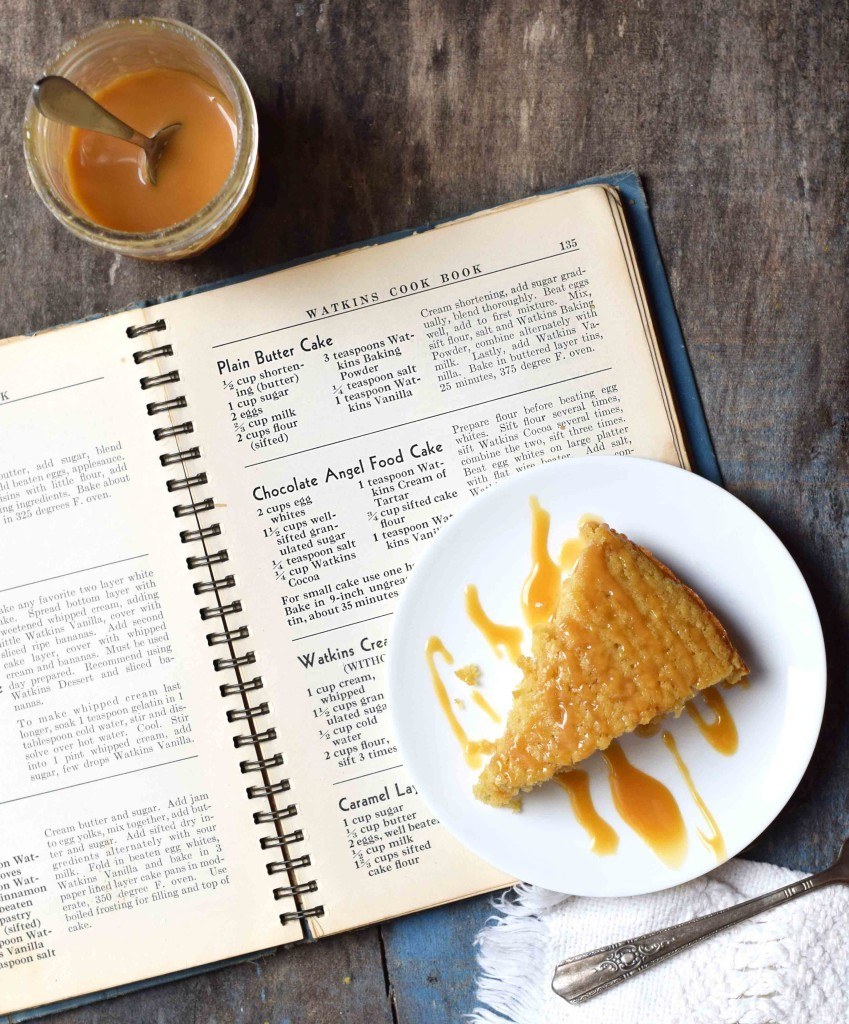 K
butter, add sugar, blend
d beaten eggs, applesauce.
isins with little flour, add
ng ingredients. Bake about
in 325 degrees F. oven.
ake any favorite two layer white
cake. Spread bottom layer with
sweetened whipped cream, adding
little Watkins Vanilla, cover with
sliced ripe bananas. Add second
cake layer, cover with whipped
cream and bananas. Must be used
day prepared. Recommend using
Watkins Dessert and sliced ba-
nanas.
To make whipped cream last
longer, soak 1 teaspoon gelatin in 1
tablespoon cold water, stir and dis-
solve over hot water. Cool. Stir
into 1 pint whipped cream, add
sugar, few drops Watkins Vanilla.
on Wat-
oves
on Wat-
innamon
beaten
pastry
(sifted)
poon Wat-
s Vanilla
aspoon salt
Cream butter and sugar. Add jam
to egg yolks, mix together, add but-
ter and sugar. Add sifted dry in-
gredients alternately with sour
milk. Fold in beaten egg whites,
Watkins Vanilla and bake in 3
paper lined layer cake pans in mod-
erate, 350 degree F. oven. Use
boiled frosting for filling and top of
cake.
WATKINS COOK BOOK 135
Plain Butter Cake
½ cup shorten-
ing (butter)
1 cup sugar
2 eggs
⅔ cup milk
2 cups flour
(sifted)
3 teaspoons Wat-
kins Baking
Powder
¼ teaspoon salt
1 teaspoon Wat-
kins Vanilla
Cream shortening, add sugar grad-
ually, blend thoroughly. Beat eggs
well, add to first mixture. Mix,
sift flour, salt and Watkins Baking
Powder, combine alternately with
milk. Lastly, add Watkins Va-
nilla. Bake in buttered layer tins,
25 minutes, 375 degree F. oven.
Chocolate Angel Food Cake
2 cups egg
whites
1½ cups well-
sifted gran-
ulated sugar
¼ teaspoon salt
¼ cup Watkins
Cocoa
1 teaspoon Wat-
kins Cream of
Tartar
¾ cup sifted cake
flour
1 teaspoon Wat-
kins Vani
Prepare flour before beating egg
whites. Sift flour several times,
sift Watkins Cocoa several times,
combine the two, sift three times.
Beat egg whites on large platter
with flat wire beater. Add salt,
For small cake use one h
Bake in 9-inch ungrea
tin, about 35 minutes
Watkins Crea
(WITHO
1 cup cream,
whipped
1½ cups gran
ulated suga
½ cup cold
water
2 cups flour,
sift 3 times
Caramel Lay
1 cup sugar
⅓ cup butter
2 eggs, well beate
½ cup milk
1⅔ cups sifted
cake flour